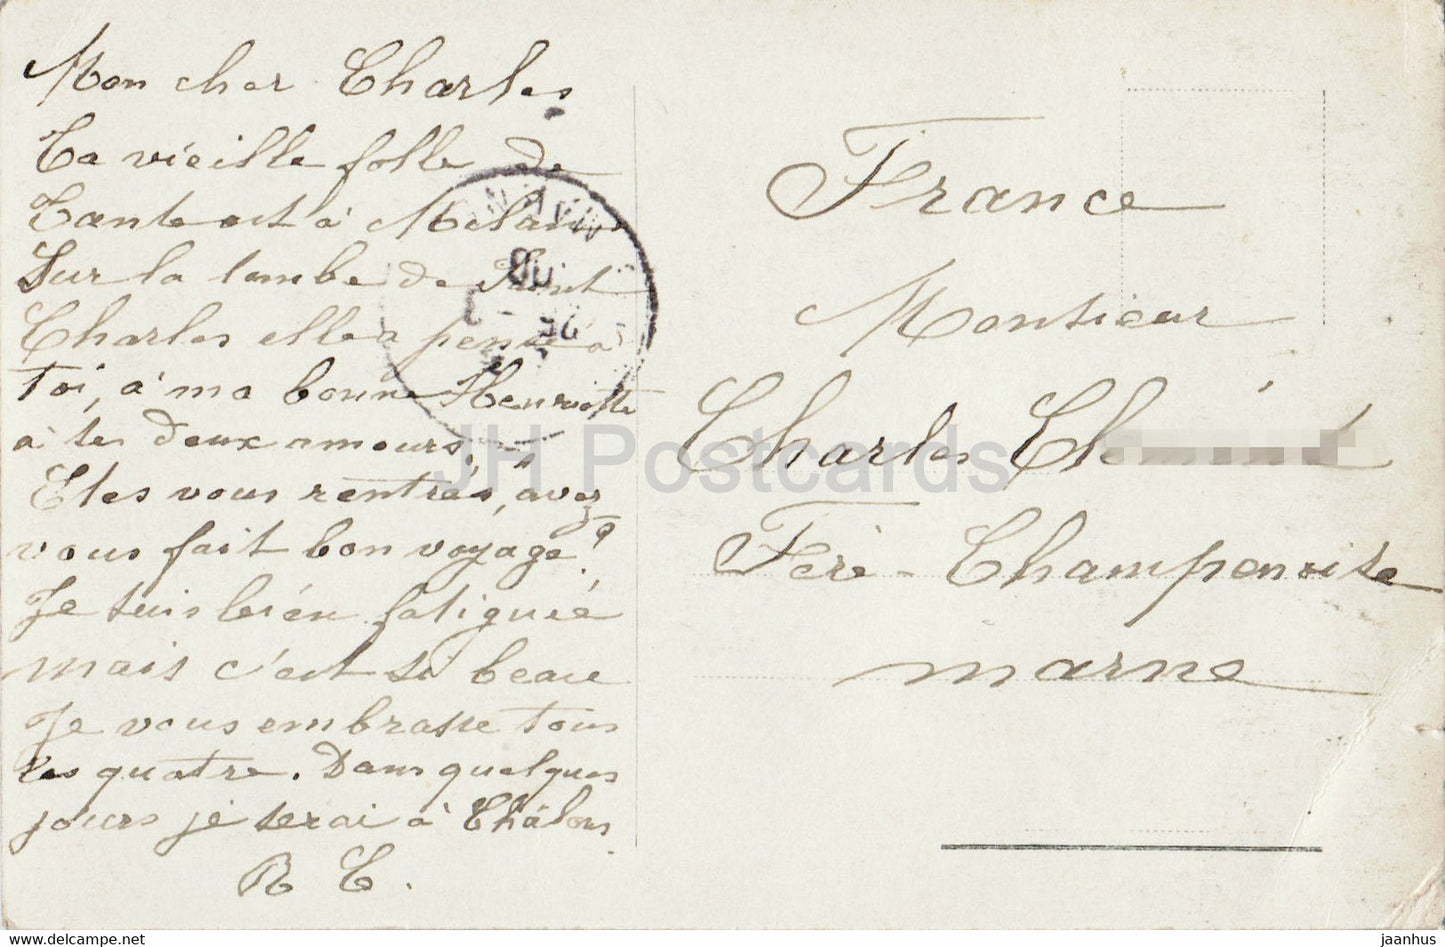 Mon cher Charles
Ta vieille folle de
Tante est à Milan
Sur la tombe de Saint
Charles elle a pensé à
toi, à ma bonne Henriette
à tes deux amours.
Etes vous rentrés, avez
vous fait bon voyage?
Je suis bién fatiguée
mais c'est si beau
Je vous embrasse tous
les quatre. Dans quelques
jours je serai à Châlons
R C.
France
Monsieur
Charles
Fère-Champenoise
marne
JH Postcards
https://www.delcampe.net
jaanhus